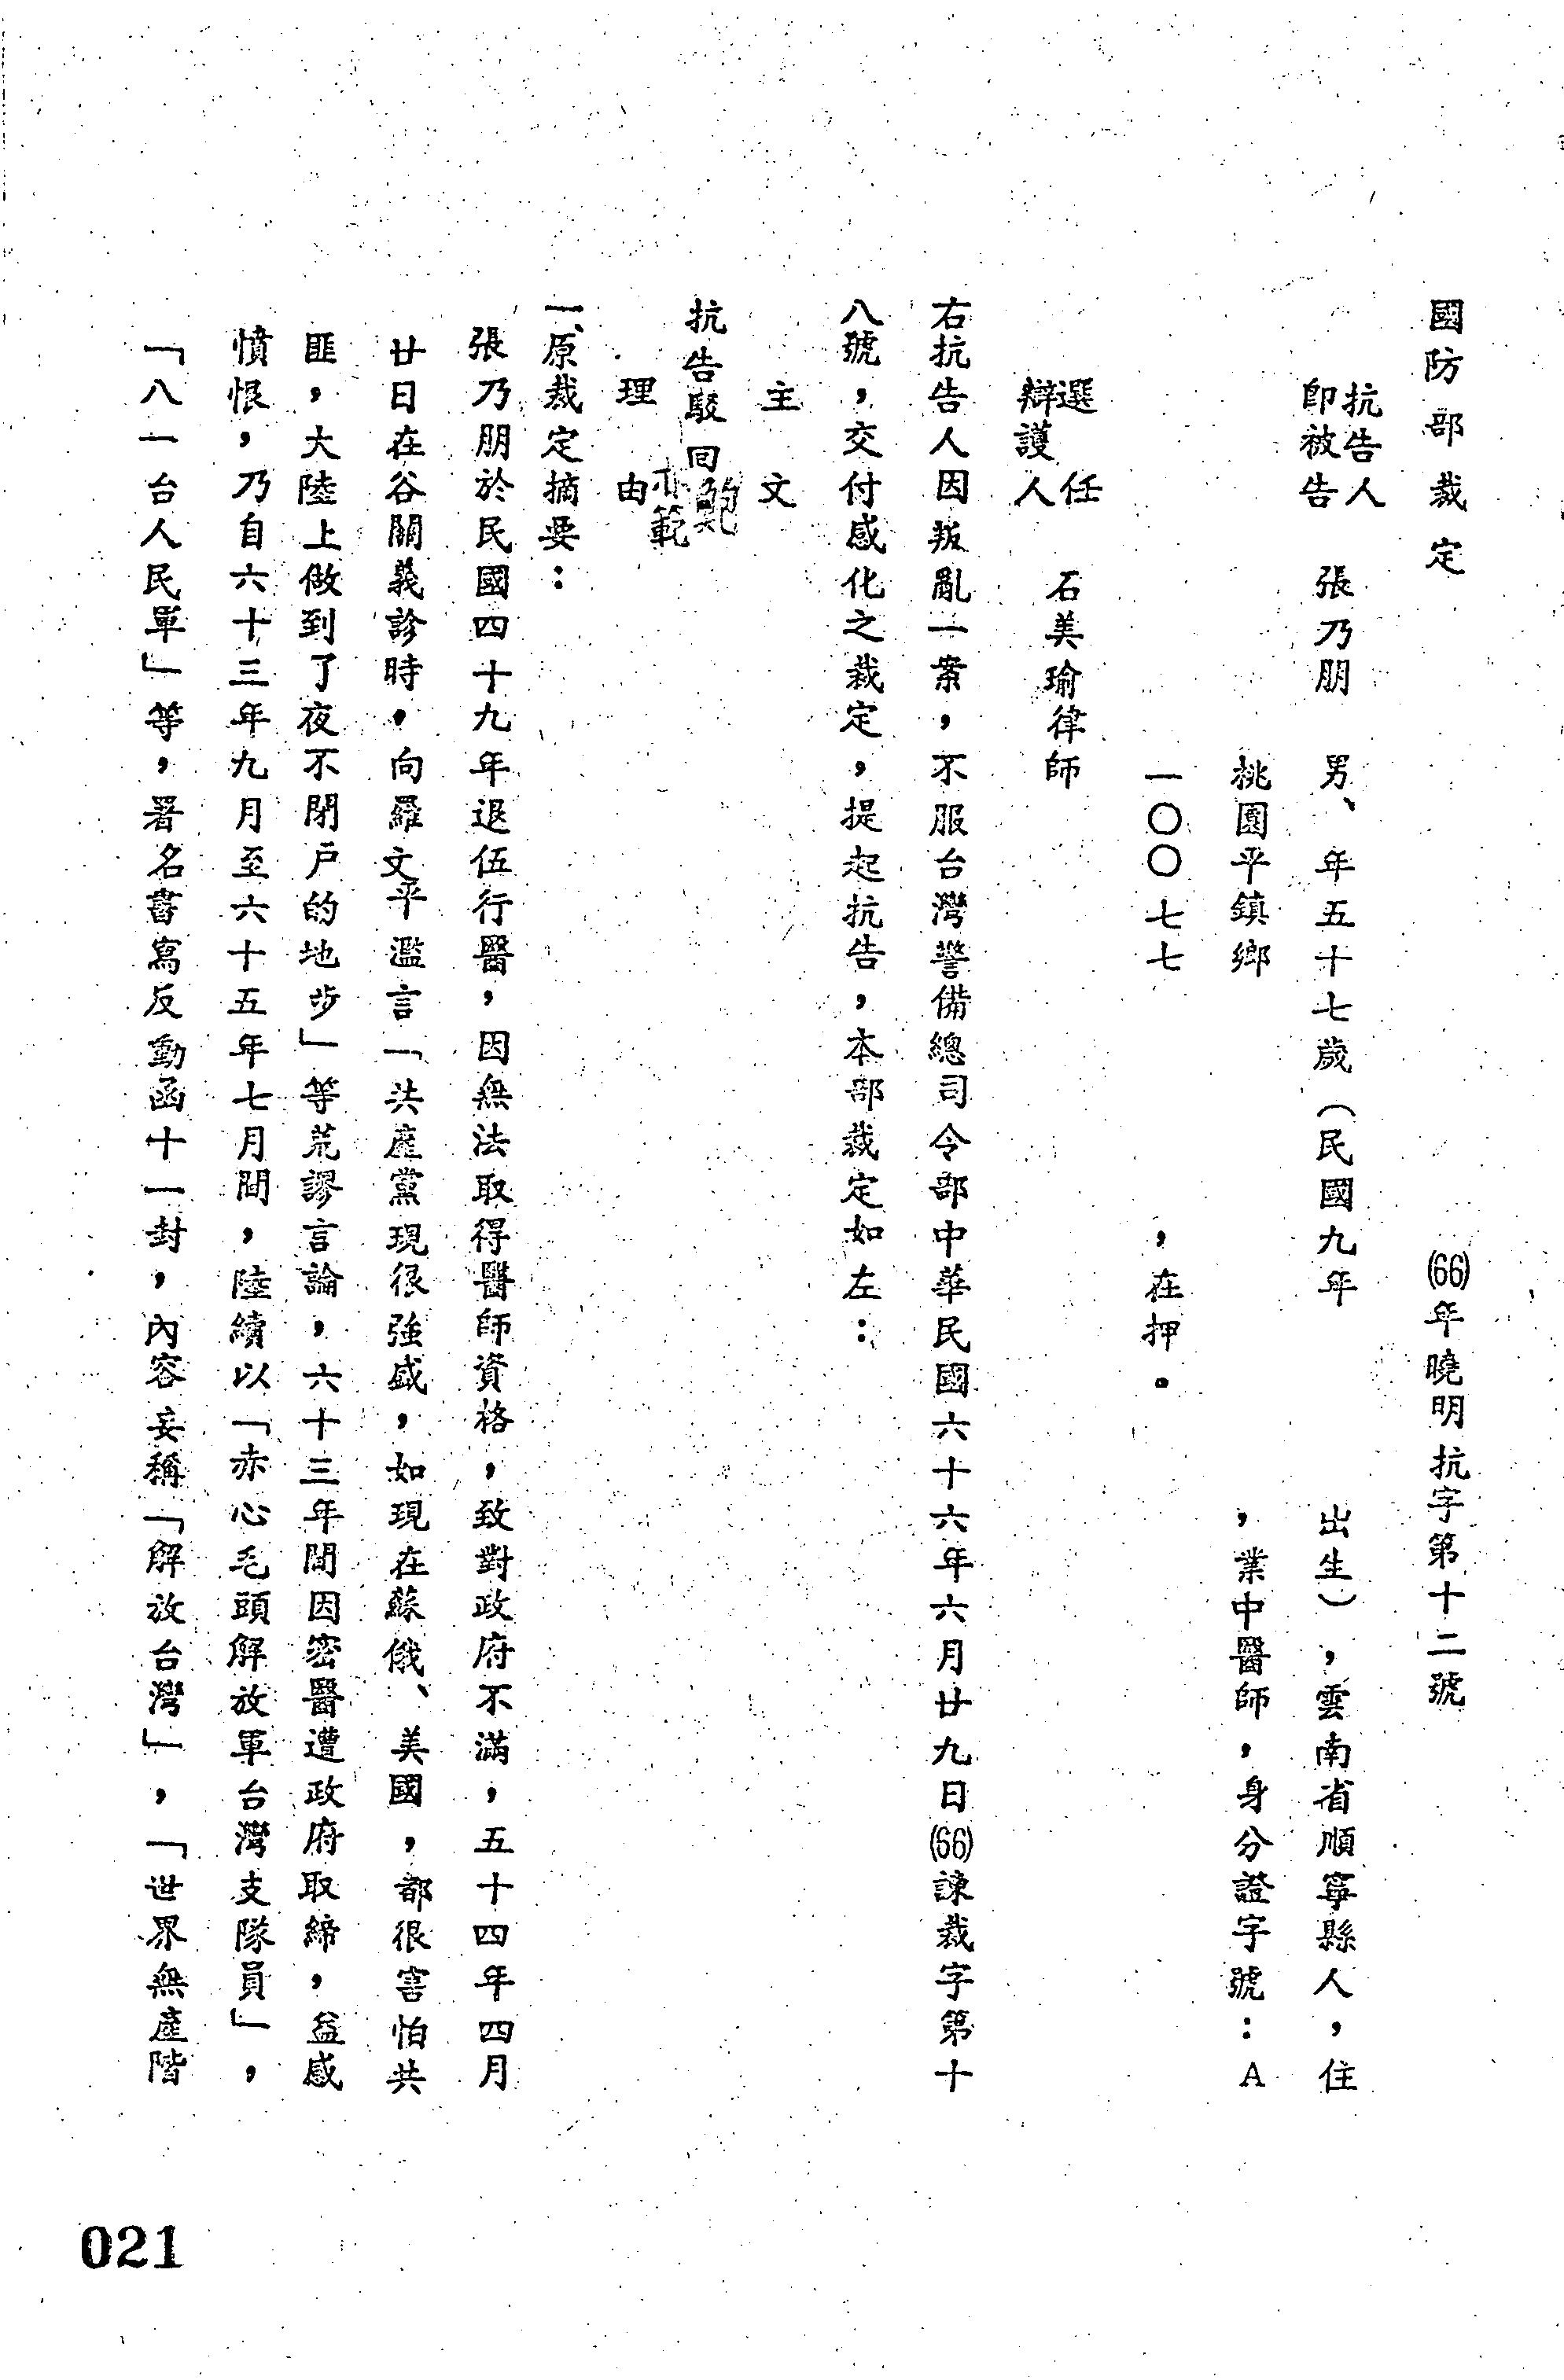 國防部裁定 (66)年曉明抗字第十二號
抗告人
即被告 張乃朋 男、年五十七歲（民國九年 出生），雲南省順寧縣人，住
桃園平鎮鄉 ，業中醫師，身分證字號：A
一〇〇七七 ，在押。
選任
辯護人 石美瑜律師
右抗告人因叛亂一案，不服台灣警備總司令部中華民國六十六年六月廿九日(66)諫裁字第十
八號，交付感化之裁定，提起抗告，本部裁定如左：
主文
抗告駁回
理由
一、原裁定摘要：
張乃朋於民國四十九年退伍行醫，因無法取得醫師資格，致對政府不滿，五十四年四月
廿日在谷關義診時，向羅文平濫言「共產黨現很強盛，如現在蘇俄、美國，都很害怕共
匪，大陸上做到了夜不閉戶的地步」等荒謬言論，六十三年間因密醫遭政府取締，益感
憤恨，乃自六十三年九月至六十五年七月間，陸續以「赤心毛頭解放軍台灣支隊員」，
「八一台人民軍」等，署名書寫反動函十一封，內容妄稱「解放台灣」，「世界無產階
021